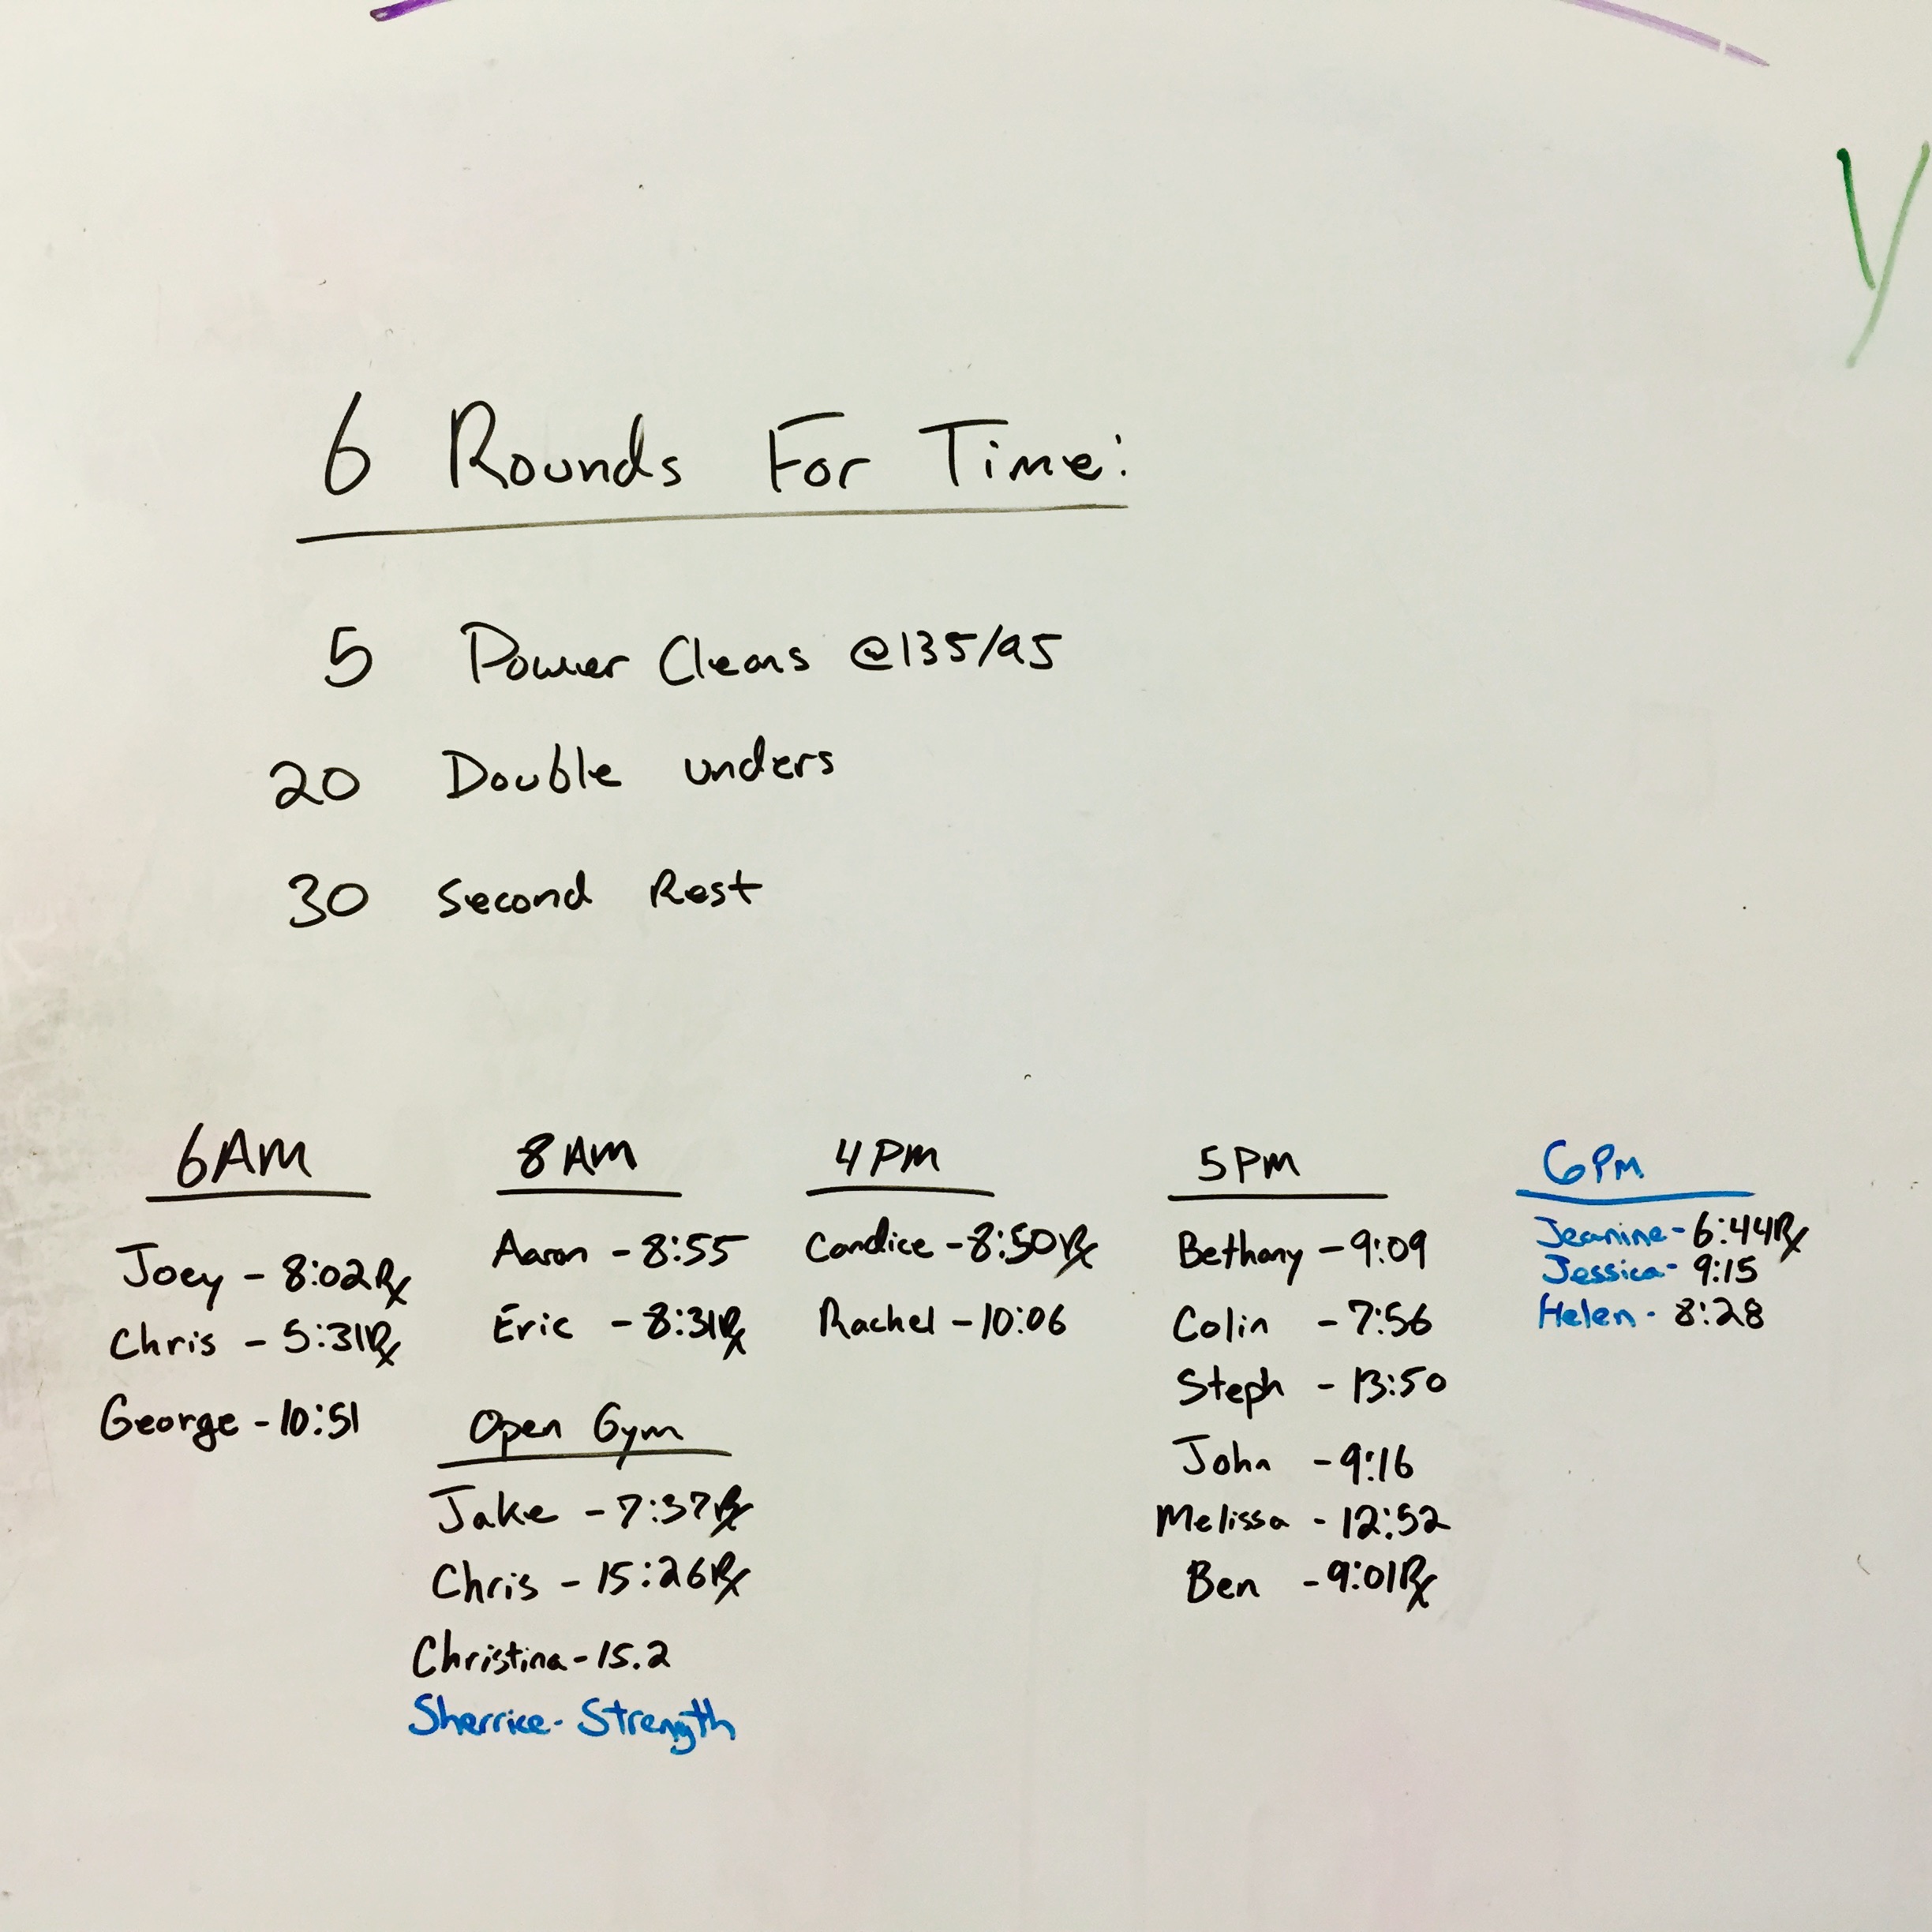 6 Rounds For Time:
5 Power Cleans @135/95
20 Double unders
30 Second Rest
6AM
Joey - 8:02 Rx
Chris - 5:31 Rx
George - 10:51
8AM
Aaron - 8:55
Eric - 8:31 Rx
Open Gym
Jake - 7:37 Rx
Chris - 15:26 Rx
Christina - 15.2
Sherrice - Strength
4PM
Candice - 8:50 Rx
Rachel - 10:06
5PM
Bethany - 9:09
Colin - 7:56
Steph - 13:50
John - 9:16
Melissa - 12:52
Ben - 9:01 Rx
6PM
Jeanine - 6:44 Rx
Jessica - 9:15
Helen - 8:28